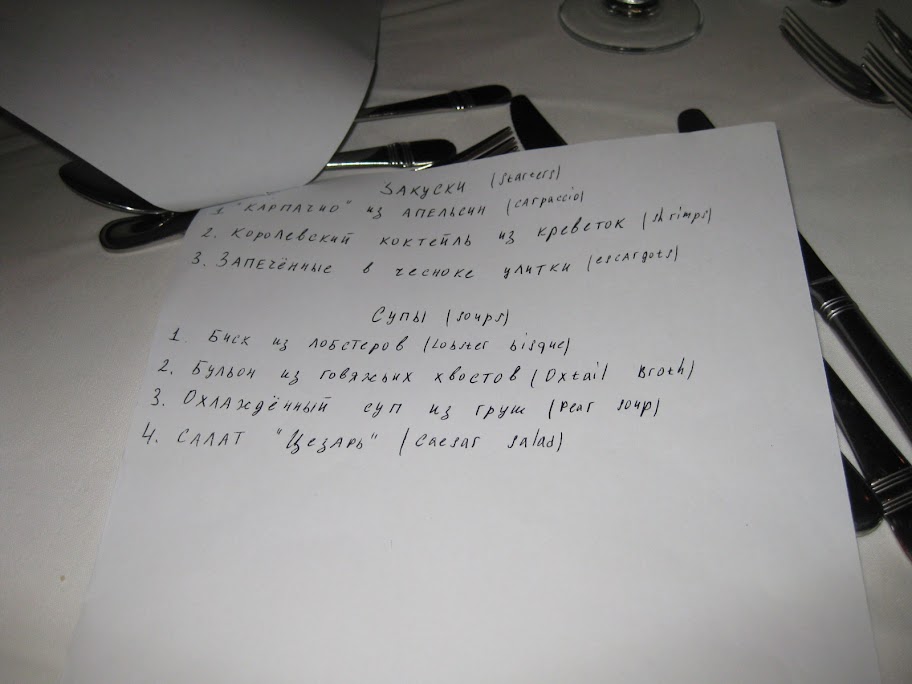 Закуски (starters)
1. "Карпачио" из апельсин (carpaccio)
2. Королевский коктейль из креветок (shrimps)
3. Запечённые в чесноке улитки (escargots)
Супы (soups)
1. Биск из лобстеров (Lobster bisque)
2. Бульон из говяжьих хвостов (Oxtail Broth)
3. Охлаждённый суп из груш (Pear soup)
4. Салат "Цезарь" (Caesar salad)